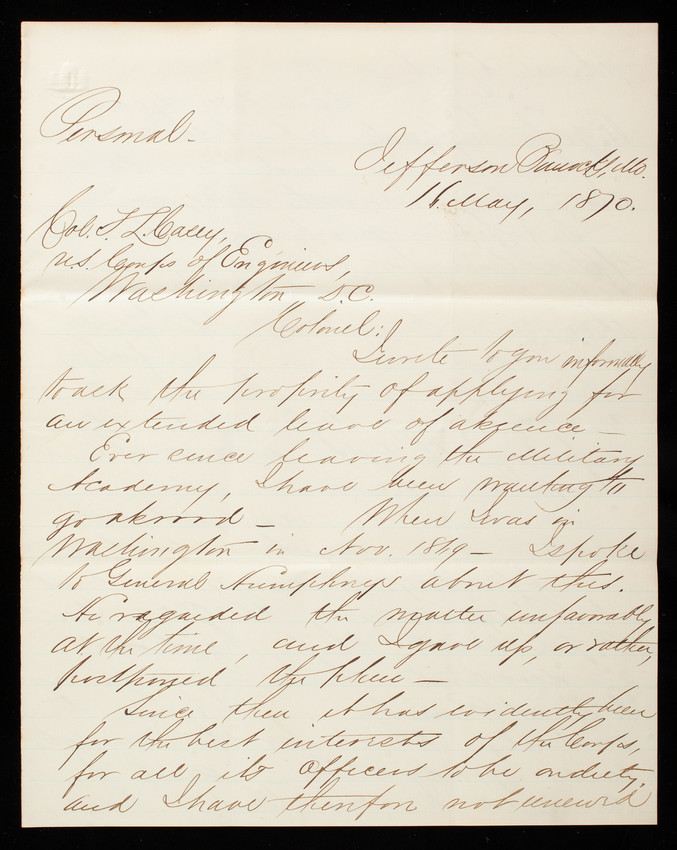 Personal-
Jefferson Barracks, Mo.
16 May, 1870.
Col. T. L. Casey,
U.S. Corps of Engineers,
Washington, D.C.
Colonel:
I write to you informally
to ask the propriety of applying for
an extended leave of absence –
Ever since leaving the Military
Academy, I have been wanting to
go abroad – When I was in
Washington in Nov. 1869 – I spoke
to General Humphreys about this.
He regarded the matter unfavorably
at the time, and I gave up, or rather,
postponed the plan –
Since then it has evidently been
for the best interests of the Corps,
for all its officers to be on duty,
and I have therefore not renewed